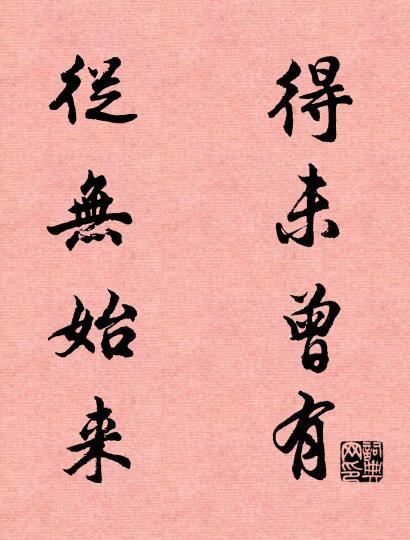 得未曾有
從無始来
詞典
网印